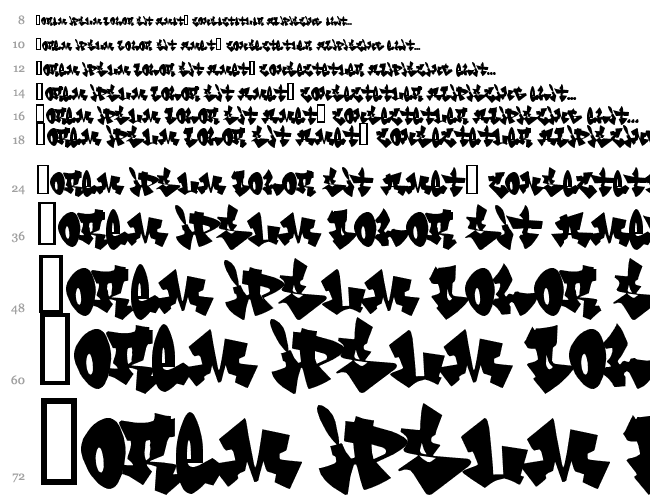 8 ▯orem ipsum dolor sit amet▯ consectetuer adipiscing elit...
10 ▯orem ipsum dolor sit amet▯ consectetuer adipiscing elit...
12 ▯orem ipsum dolor sit amet▯ consectetuer adipiscing elit...
14 ▯orem ipsum dolor sit amet▯ consectetuer adipiscing elit...
16 ▯orem ipsum dolor sit amet▯ consectetuer adipiscing elit...
18 ▯orem ipsum dolor sit amet▯ consectetuer
24 ▯orem ipsum dolor sit amet▯
36 ▯orem ipsum dolor sit
48 ▯orem ipsum dolor
60 ▯orem ipsum
72 ▯orem ipsum